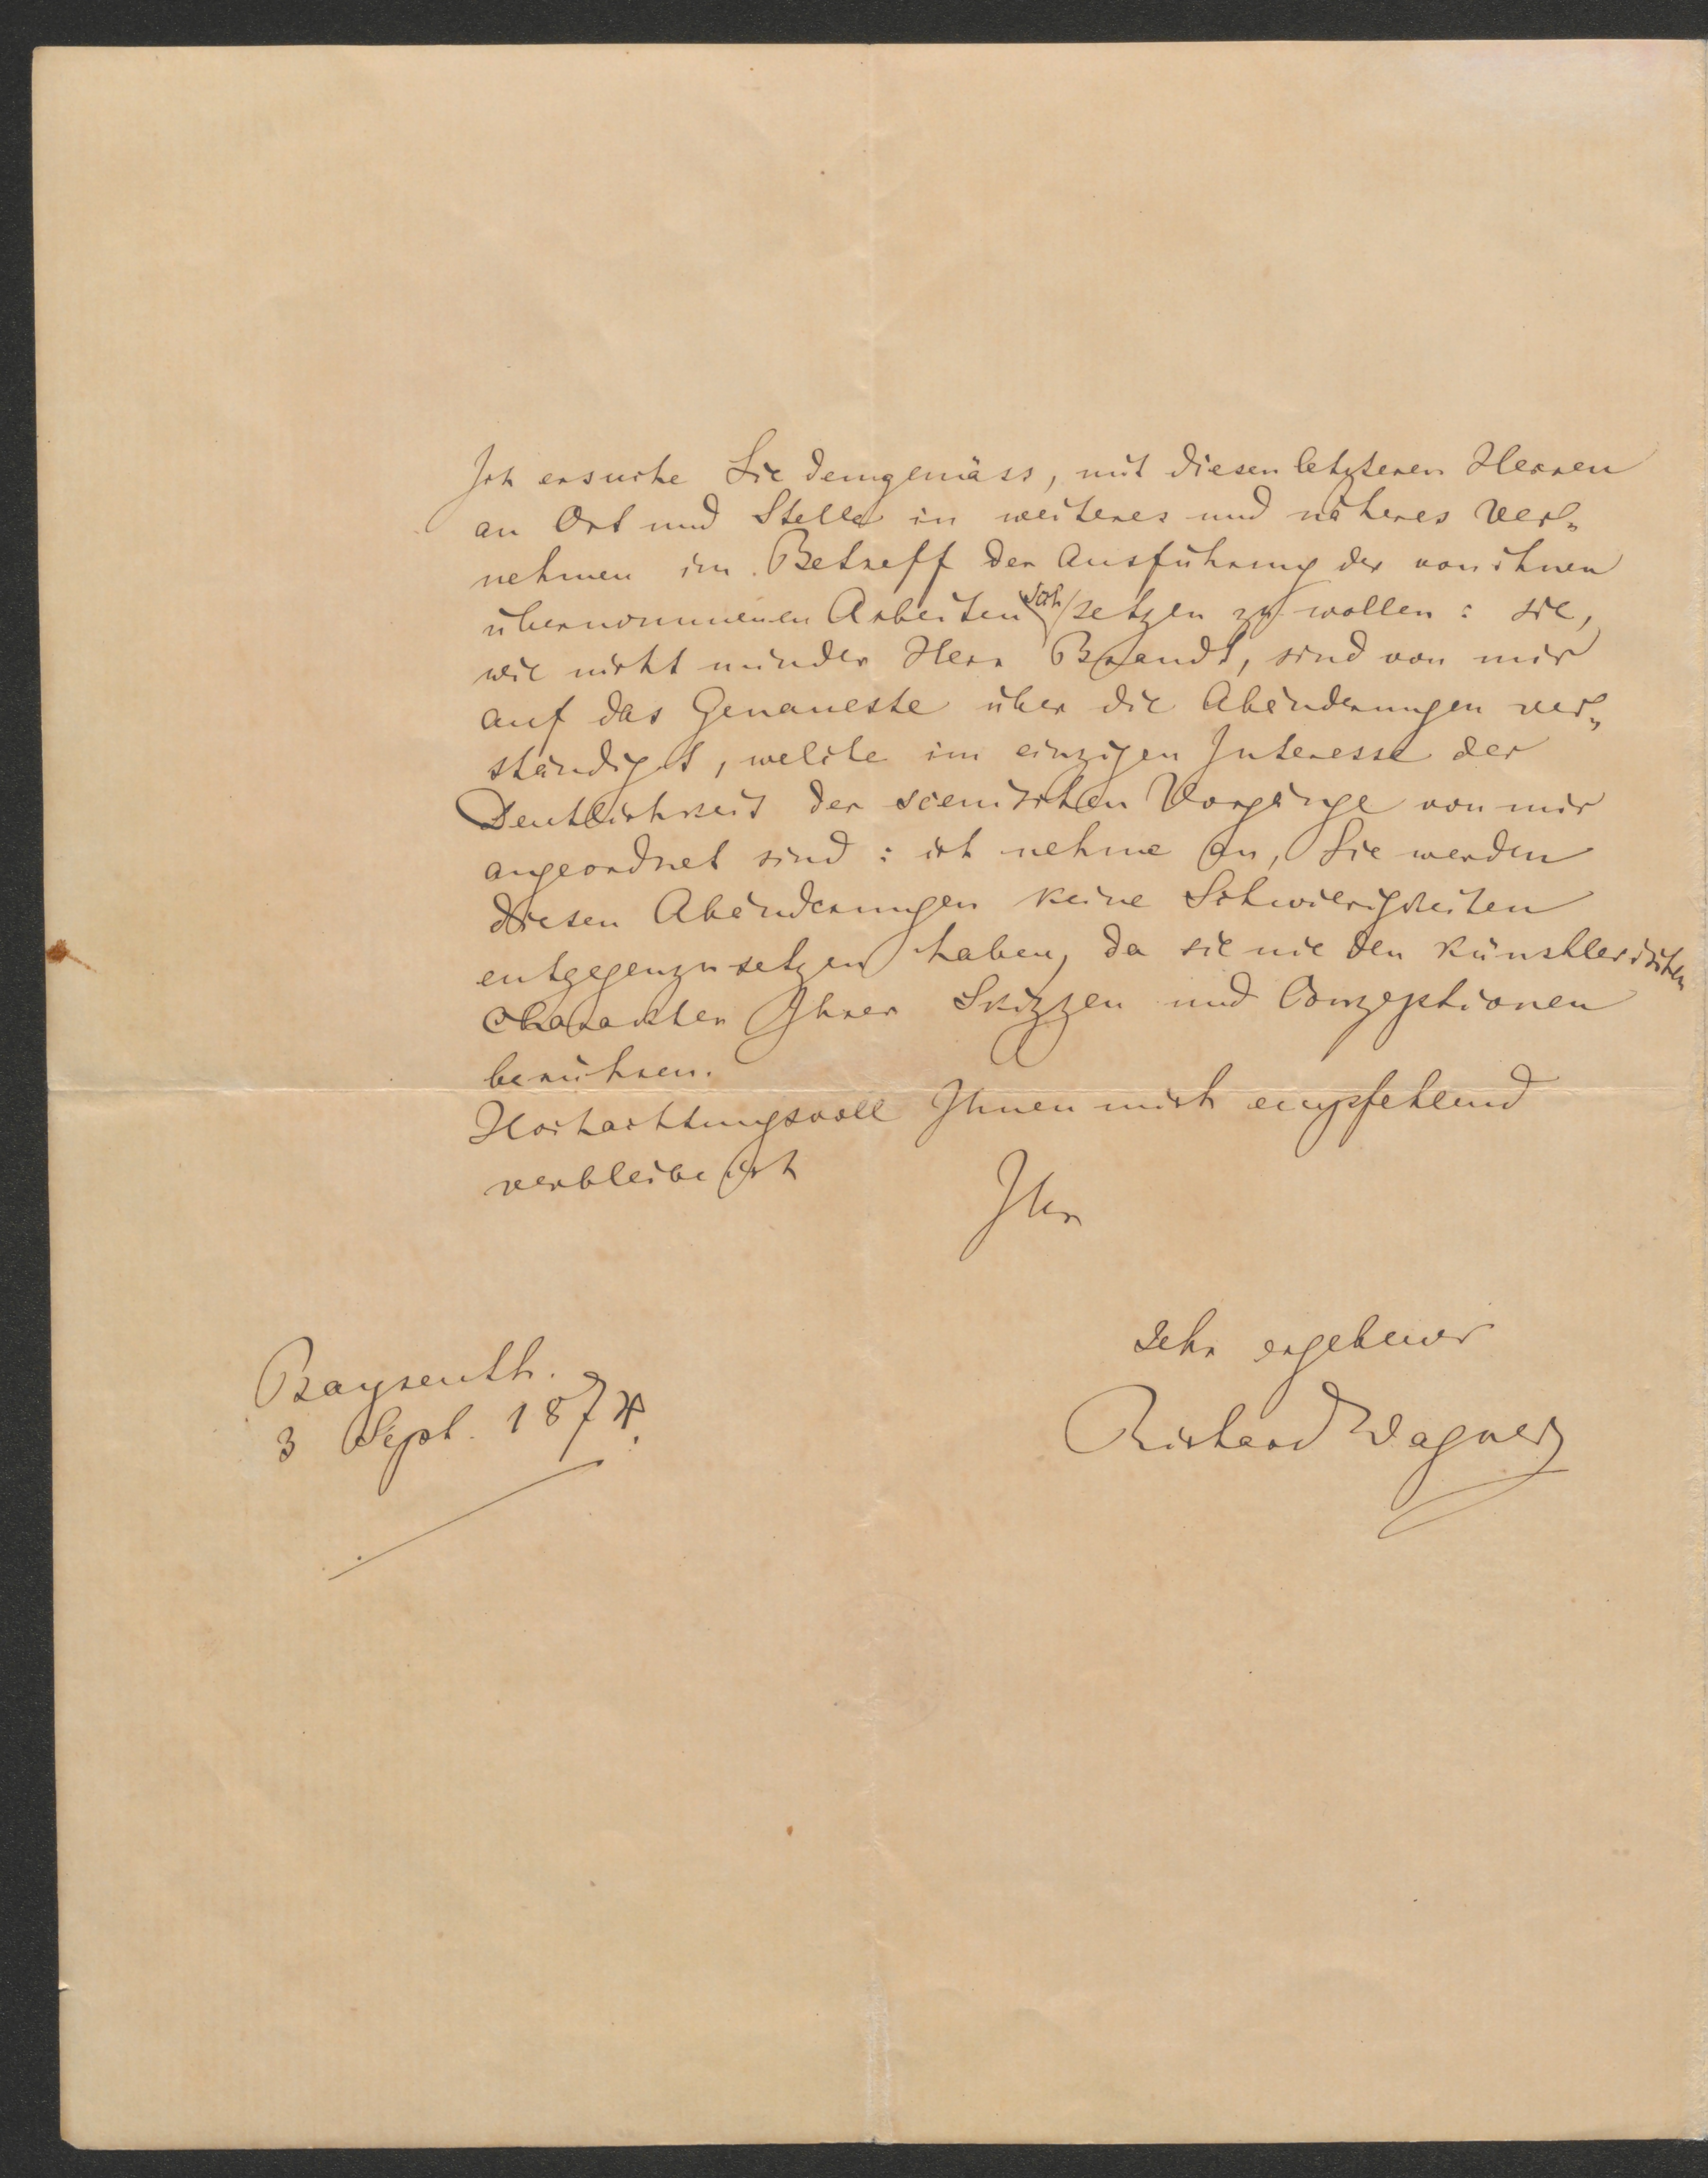 Ich ersuche Sie demgemäss, mit diesen letzteren Herren
an Ort und Stelle in weiteres und näheres Ver-
nehmen im Betreff der Ausführung der von ihnen
übernommenen Arbeiten sich setzen zu wollen: sie,
wie nicht minder Herr Brandt, sind von mir
auf das Genaueste über die Abänderungen ver-
ständigt, welche im einzigen Interesse der
Deutlichkeit der scenischen Vorgänge von mir
angeordnet sind: ich nehme an, Sie werden
diesen Abänderungen keine Schwierigkeiten
entgegenzusetzen haben, da sie nie den künstlerischen
Charakter Ihrer Skizzen und Conzeptionen
berühren.
Hochachtungsvoll Ihnen mich empfehlend
verbleibe ich
Ihr
sehr ergebener
Richard Wagner
Bayreuth.
3 Sept. 1874.